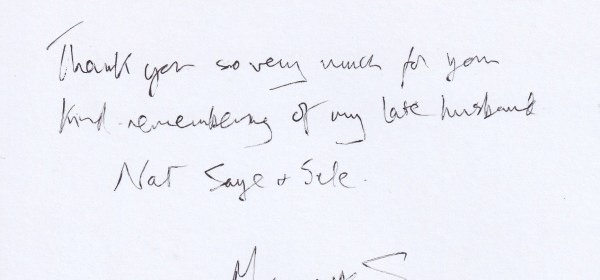 Thank you so very much for your
kind remembering of my late husband
Nat Saye + Sele.